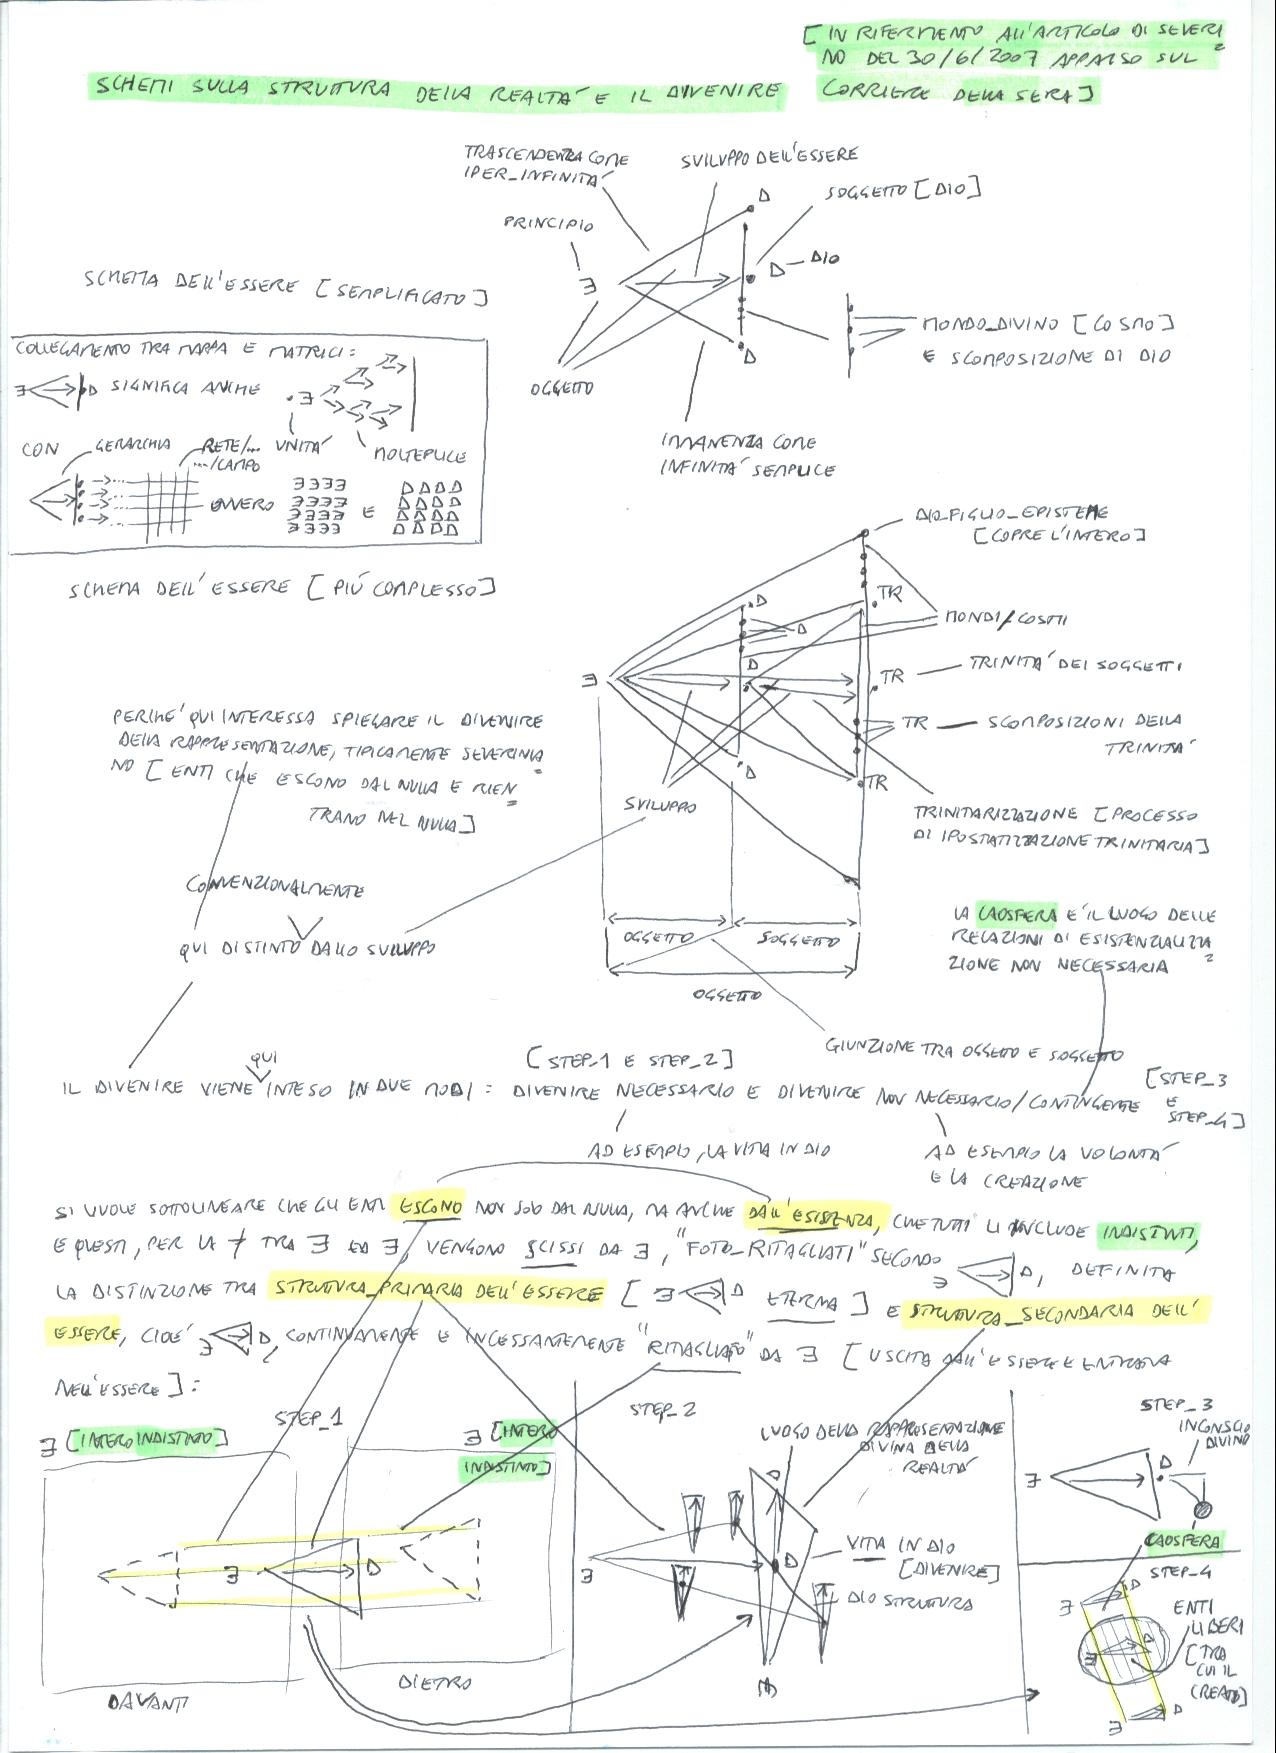 [IN RIFERIMENTO ALL'ARTICOLO DI SEVERI
NO DEL 30/6/2007 APPARSO SUL
CORRIERE DELLA SERA]
SCHEMI SULLA STRUTTURA DELLA REALTA' E IL DIVENIRE
TRASCENDENZA COME
IPER_INFINITA'
SVILUPPO DELL'ESSERE
SOGGETTO [DIO]
PRINCIPIO
D
∃
D
DIO
D
SCHEMA DELL'ESSERE [SEMPLIFICATO]
MONDO_DIVINO [COSMO]
E SCOMPOSIZIONE DI DIO
OGGETTO
IMMANENZA COME
INFINITA' SEMPLICE
COLLEGAMENTO TRA MAPPA E MATRICI:
∃ D SIGNIFICA ANCHE ∃
CON GERARCHIA RETE/...
.../CAMPO
UNITA' MOLTEPLICE
OVVERO
∃∃∃∃
∃∃∃∃
∃∃∃∃
∃∃∃∃
E
DDDD
DDDD
DDDD
DDDD
DIO_FIGLIO_EPISTEME
[COPRE L'INTERO]
SCHEMA DELL'ESSERE [PIÚ COMPLESSO]
D
TR
D
MONDI/COSMI
D
∃
TR
TRINITA' DEI SOGGETTI
TR SCOMPOSIZIONI DELLA
TRINITA'
D
TR
PERCHE' QUI INTERESSA SPIEGARE IL DIVENIRE
DELLA RAPPRESENTAZIONE, TIPICAMENTE SEVERINIA
NO [ENTI CHE ESCONO DAL NULLA E RIEN
TRANO NEL NULLA]
SVILUPPO
TRINITARIZZAZIONE [PROCESSO
DI IPOSTATIZZAZIONE TRINITARIA]
CONVENZIONALMENTE
QUI DISTINTO DALLO SVILUPPO
OGGETTO SOGGETTO
OGGETTO
LA CAOSFERA E' IL LUOGO DELLE
RELAZIONI DI ESISTENZIALIZZA
ZIONE NON NECESSARIA
GIUNZIONE TRA OGGETTO E SOGGETTO
QUI
[STEP_1 E STEP_2]
IL DIVENIRE VIENE INTESO IN DUE MODI: DIVENIRE NECESSARIO E DIVENIRE NON NECESSARIO/CONTINGENTE
[STEP_3
E
STEP_4]
AD ESEMPIO, LA VITA IN DIO
AD ESEMPIO LA VOLONTA'
E LA CREAZIONE
SI VUOLE SOTTOLINEARE CHE GLI ENTI ESCONO NON SOLO DAL NULLA, MA ANCHE DALL'ESISTENZA, CHE TUTTI LI INCLUDE INDISTINTI,
E QUESTI, PER LA ≠ TRA ∃ ED ∃, VENGONO SCISSI DA ∃, "FOTO_RITAGLIATI" SECONDO ∃ D, DEFINITA
LA DISTINZIONE TRA STRUTTURA_PRIMARIA DELL'ESSERE [∃ D ETERNA] E STRUTTURA_SECONDARIA DELL'
ESSERE, CIOE' ∃ D, CONTINUAMENTE E INCESSANTEMENTE "RITAGLIATO" DA ∃ [USCITA DALL'ESSERE E ENTRATA
NELL'ESSERE]:
∃ [INTERO INDISTINTO]
STEP_1
∃ [INTERO
INDISTINTO]
∃ D
DAVANTI
DIETRO
STEP_2
LUOGO DELLA RAPPRESENTAZIONE
DIVINA DELLA
REALTA'
D
∃
D
VITA IN DIO
[DIVENIRE]
DIO STRUTTURA
STEP_3
INCONSCIO
DIVINO
∃ D
CAOSFERA
STEP_4
∃ D
∃ D
∃ D
ENTI
LIBERI
[TRA
CUI IL
CREATO]